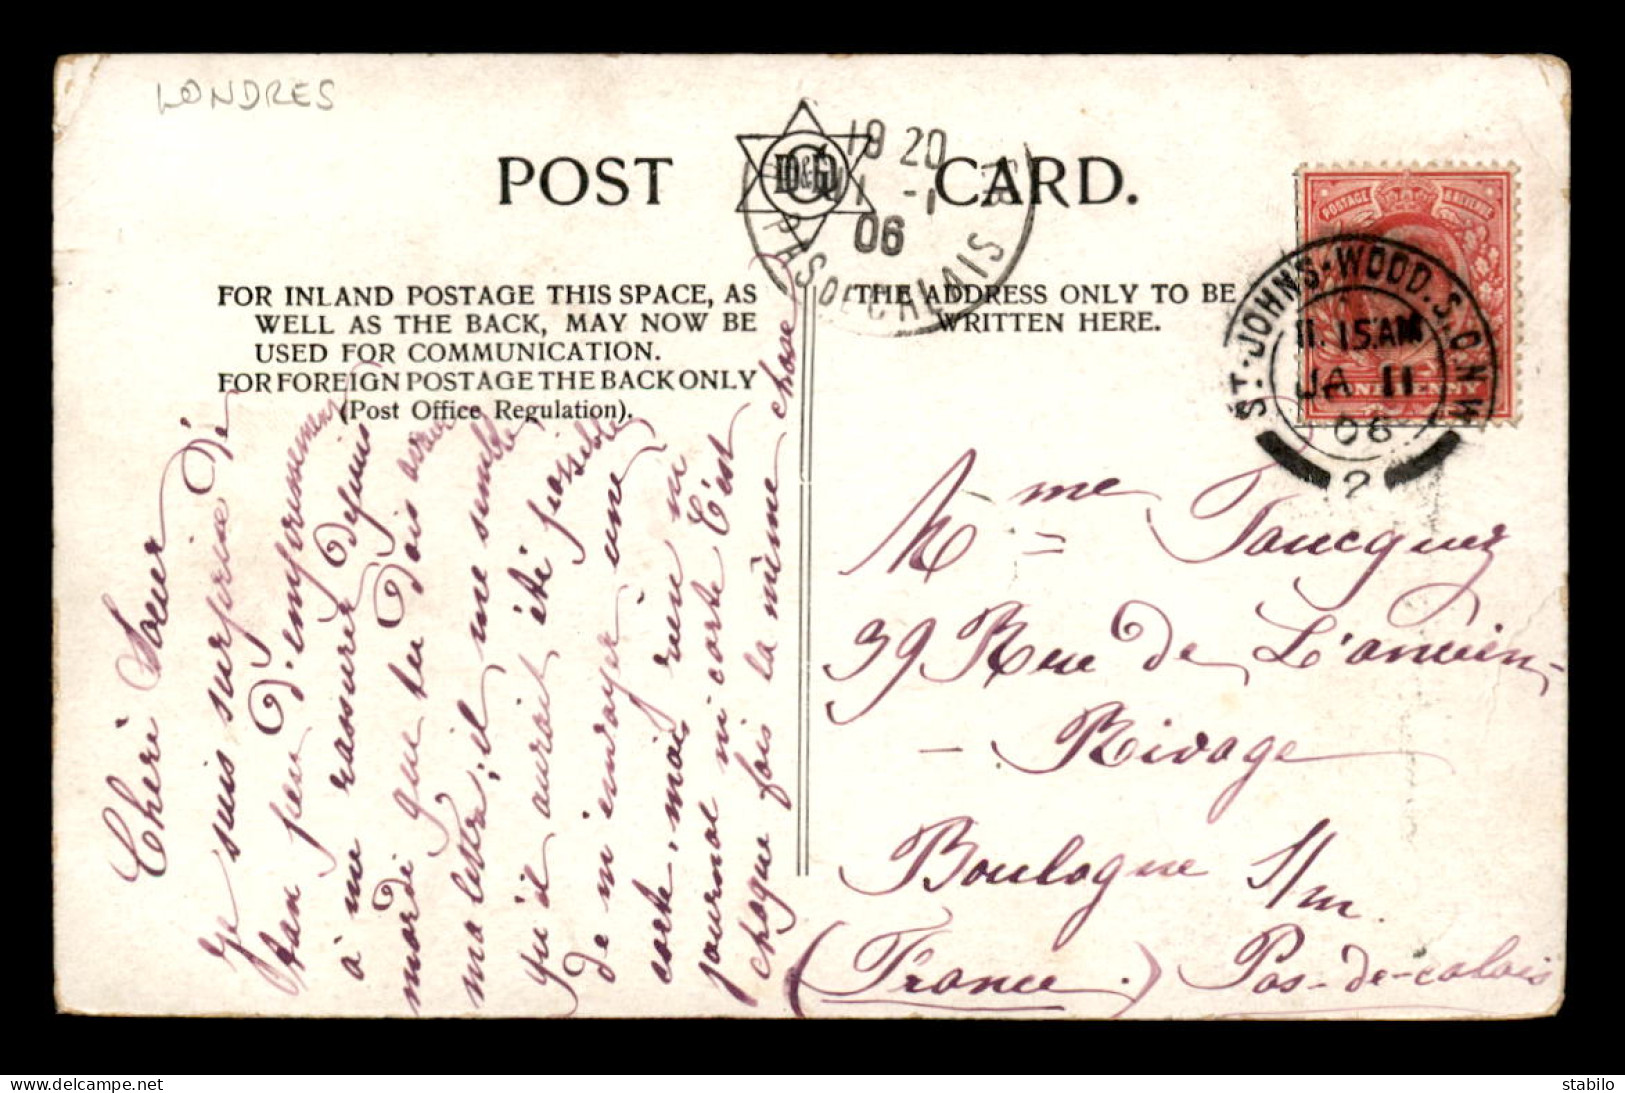 LONDRES
POST CARD.
D&G
19 20
11 -1
06
PAS DE CALAIS
FOR INLAND POSTAGE THIS SPACE, AS
WELL AS THE BACK, MAY NOW BE
USED FOR COMMUNICATION.
FOR FOREIGN POSTAGE THE BACK ONLY
(Post Office Regulation).
THE ADDRESS ONLY TO BE
WRITTEN HERE.
POSTAGE & REVENUE
ONE PENNY
ST. JOHN'S-WOOD.S.O. N.W
11.15AM
JA 11
06
2
Cheri Soeur
Je suis surprise de
ton peu d'empressement
à me rassurer depuis
mardi que tu dois avoir
ma lettre; il me semble
qu'il aurait été possible
de m'envoyer une
carte, mais rien ni
journal ni carte C'est
chaque fois la même chose
Mme
39 Rue de L'ancien-
- Rivage
Boulogne S/m.
(France.) Pas-de-calais
www.delcampe.net
stabilo